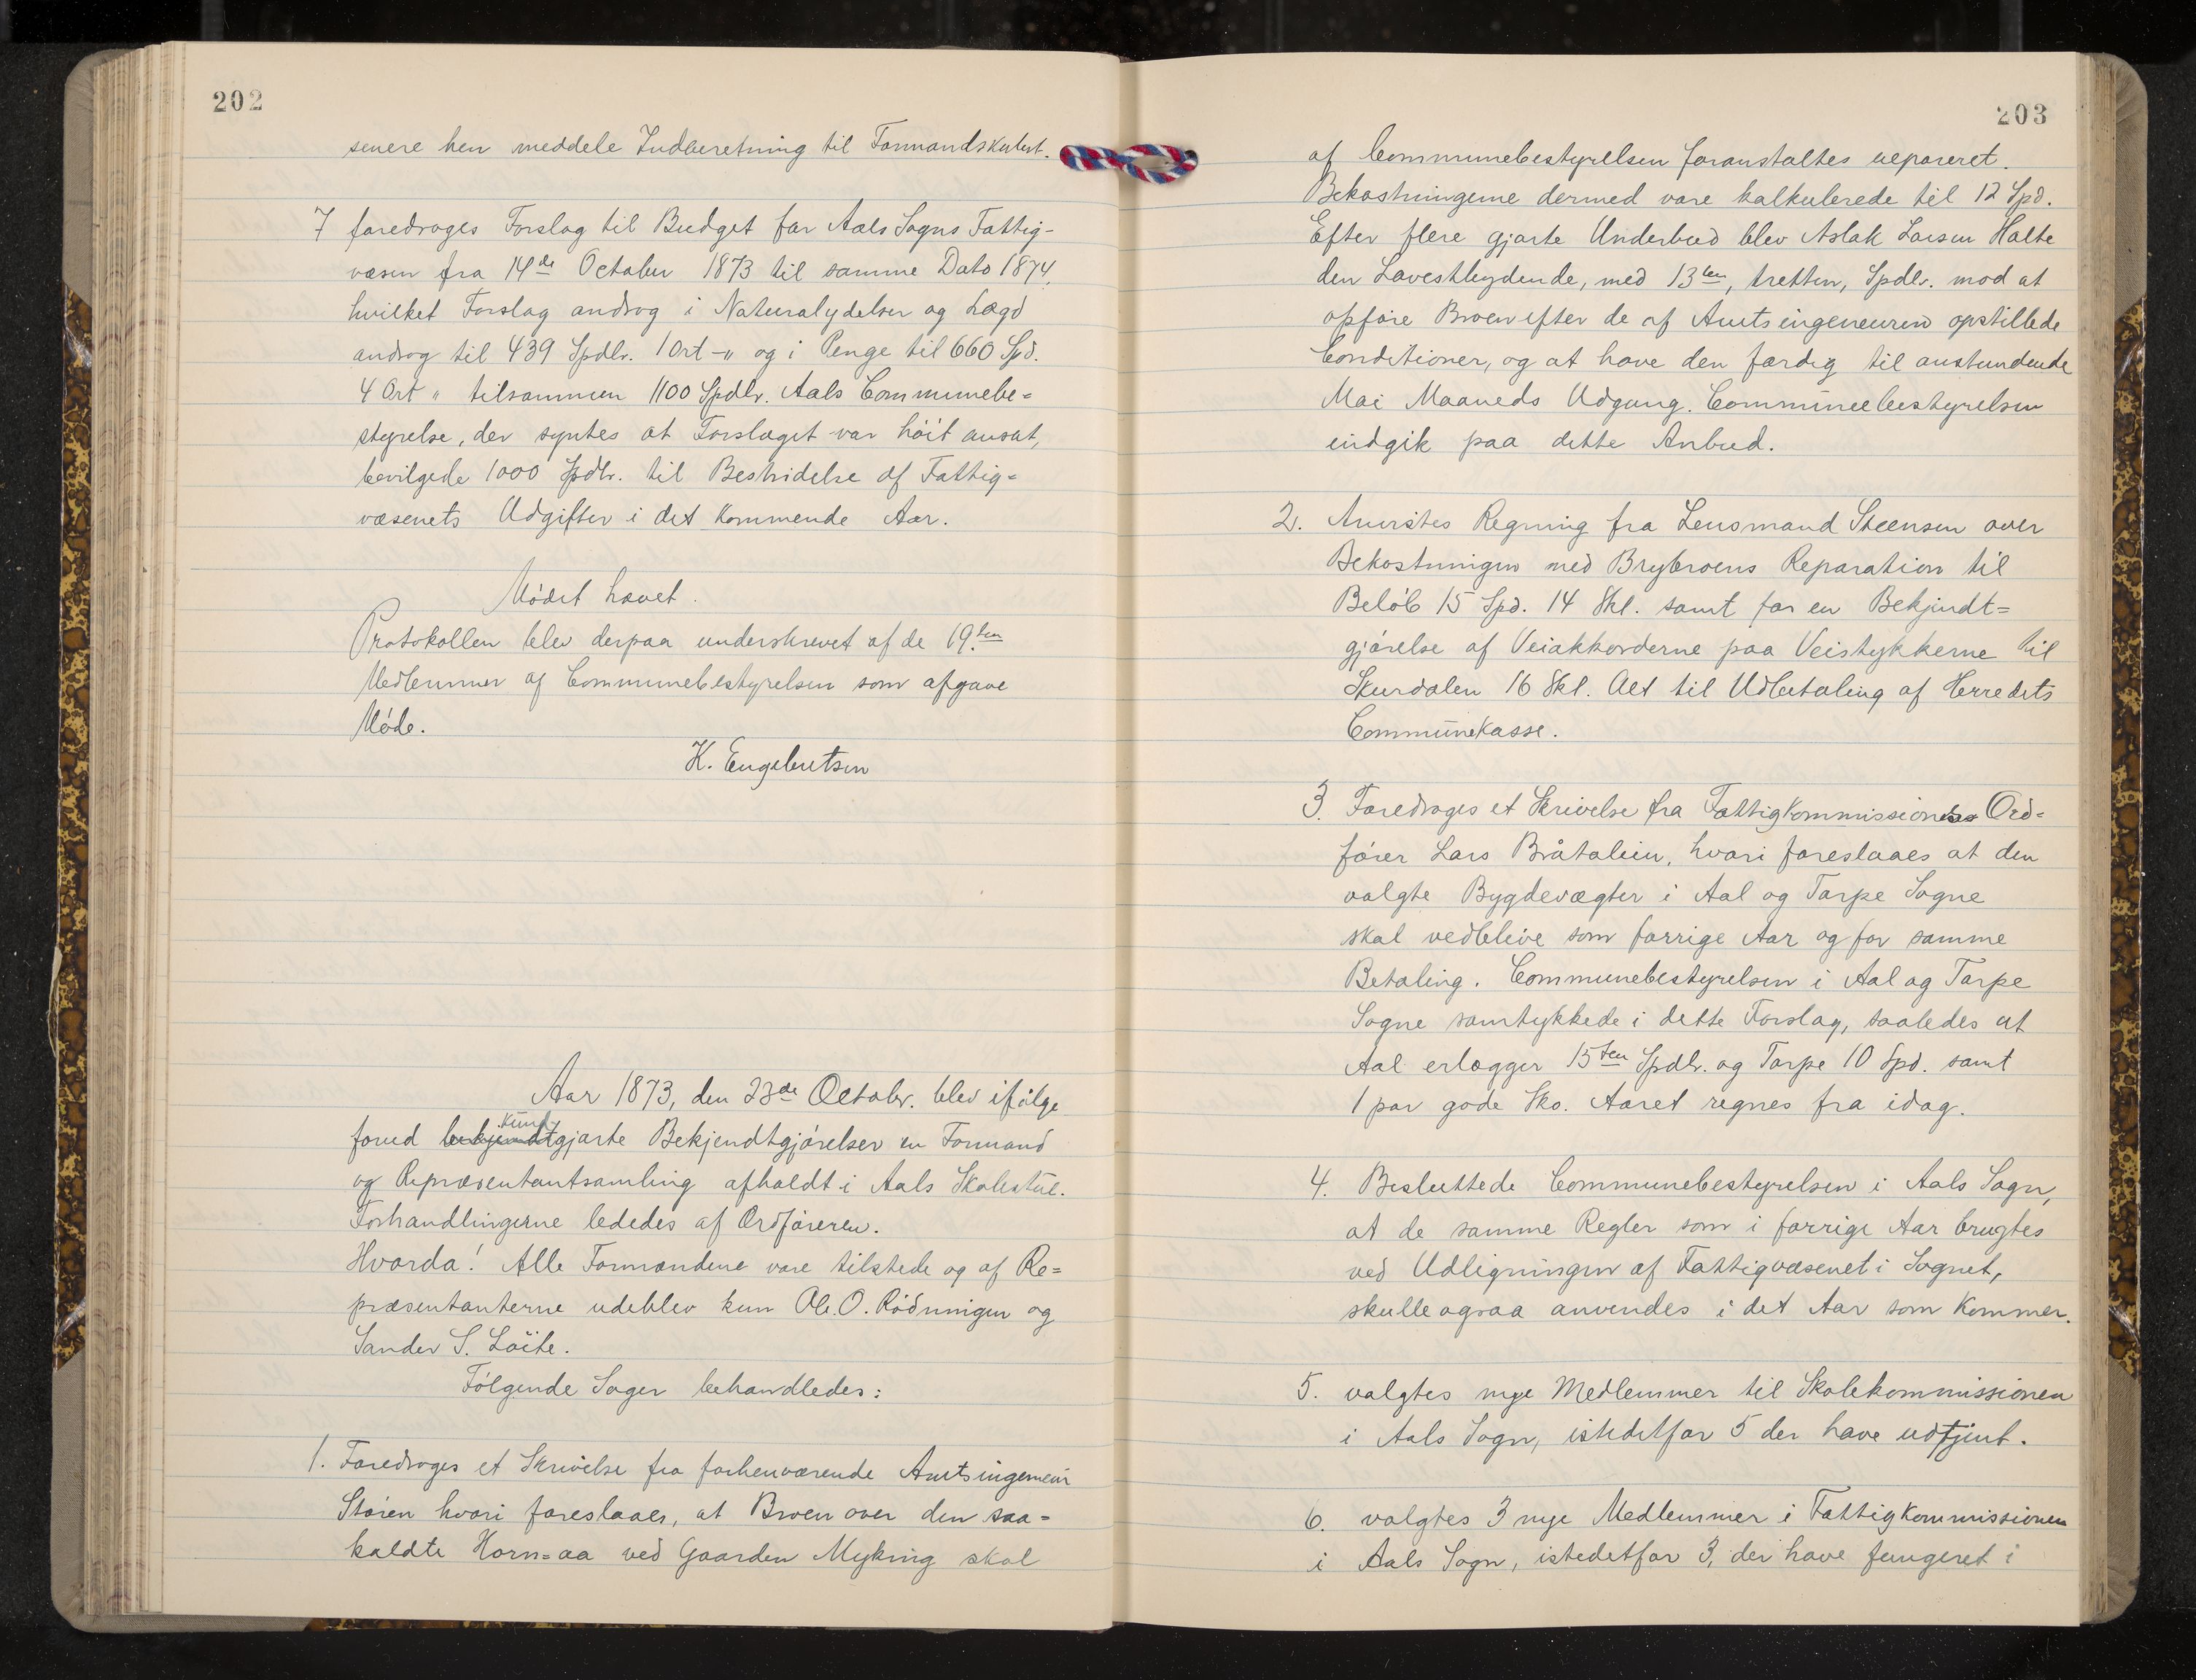 202
senere hen meddele Indberetning til Formandskabet.
7 foredroges Forslag til Budget for Aals Sogns Fattig-
væsen fra 14de October 1873 til samme Dato 1874,
hvilket Forslag androg i Naturalydelser og Lægd
androg til 439 Spdlr. 1 Ort -" og i Penge til 660 Spd.
4 Ort " tilsammen 1100 Spdlr. Aals Communebe=
styrelse, der syntes at Forslaget var höit ansat,
bevilgede 1000 Spdlr. til Bestridelse af Fattig=
væsenets Udgifter i det kommende Aar.
Mödet hævet.
Protokollen blev derpaa underskrevet af de 19.ten
Medlemmer af Communebestyrelsen som afgave
Möde.
K. Engebretsen
Aar 1873, den 23de Octobr. blev ifölge
forud bekjendt kund gjorte Bekjendtgjörelser en Formand
og Repræsentantsamling afholdt i Aals Skolestue.
Forhandlingerne lededes af Ordföreren.
Hvorda! Alle Formændene vare tilstede og af Re=
præsentanterne udeblev kun Ole O. Rödningen og
Sander S. Löite.
Fölgende Sager behandledes:
1. Foredroges et Skrivelse fra forhenværende Amtsingeneur
Stören hvori foreslaaes, at Broen over den saa=
kaldte Horn=aa ved Gaarden Myking skal
203
af Communebestyrelsen foranstaltes repareret.
Bekostningerne dermed vare kalkulerede til 12 Spd.
Efter flere gjorte Underbud blev Aslak Larsen Halte
den Lavestbydende, med 13ten, tretten, Spdlr. mod at
opföre Broen efter de af Amtsingeneuren opstillede
Conditioner, og at have den færdig til anstundende
Mai Maaneds Udgang. Communebestyrelsen
indgik paa dette Anbud.
2. Anvistes Regning fra Lensmand Steensen over
Bekostningen med Brybroens Reparation til
Belöb 15 Spd. 14 Skl. samt for en Bekjendt=
gjörelse af Veiakkorderne paa Veistykkerne til
Skurdalen 16 Skl. Alt til Udbetaling af Herredets
Communekasse.
3. Foredroges et Skrivelse fra Fattigkommissionens Ord=
förer Lars Bråtalien, hvori foreslaaes at den
valgte Bygdevægter i Aal og Torpe Sogne
skal vedblive som forrige Aar og for samme
Betaling. Communebestyrelsen i Aal og Torpe
Sogne samtykkede i dette Forslag, saaledes at
Aal erlægger 15ten Spdlr. og Torpe 10 Spd. samt
1 par gode Sko. Aaret regnes fra idag.
4. Besluttede Communebestyrelsen i Aals Sogn,
at de samme Regler som i forrige Aar brugtes
ved Udligningen af Fattigvæsenet i Sognet,
skulle ogsaa anvendes i det Aar som kommer.
5. valgtes nye Medlemmer til Skolekommissionen
i Aals Sogn, istedetfor 5 der have udtjent.
6. valgtes 3 nye Medlemmer i Fattigkommissionen
i Aals Sogn, istedetfor 3, der have fungeret i